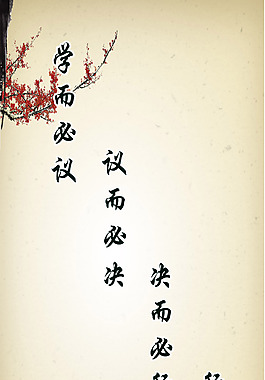 学而必议
议而必决
决而必